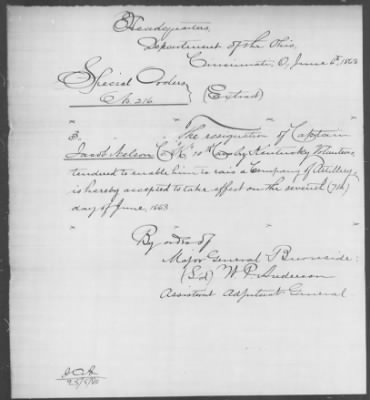 Headquarters,
Department of the Ohio,
Cincinnati, O, June 6th, 1863
Special Orders
No. 216.
(Extract)
" " " "
3. The resignation of Captain
Jacob Nelson Co "K" 10th Cavalry Kentucky Volunteers,
tendered to enable him to raise a Company of Artillery,
is hereby accepted to take effect on the seventh (7th)
day of June, 1863.
" " " "
By order of
Major General Burnside:
(Sd) W. P. Anderson
Assistant Adjutant General